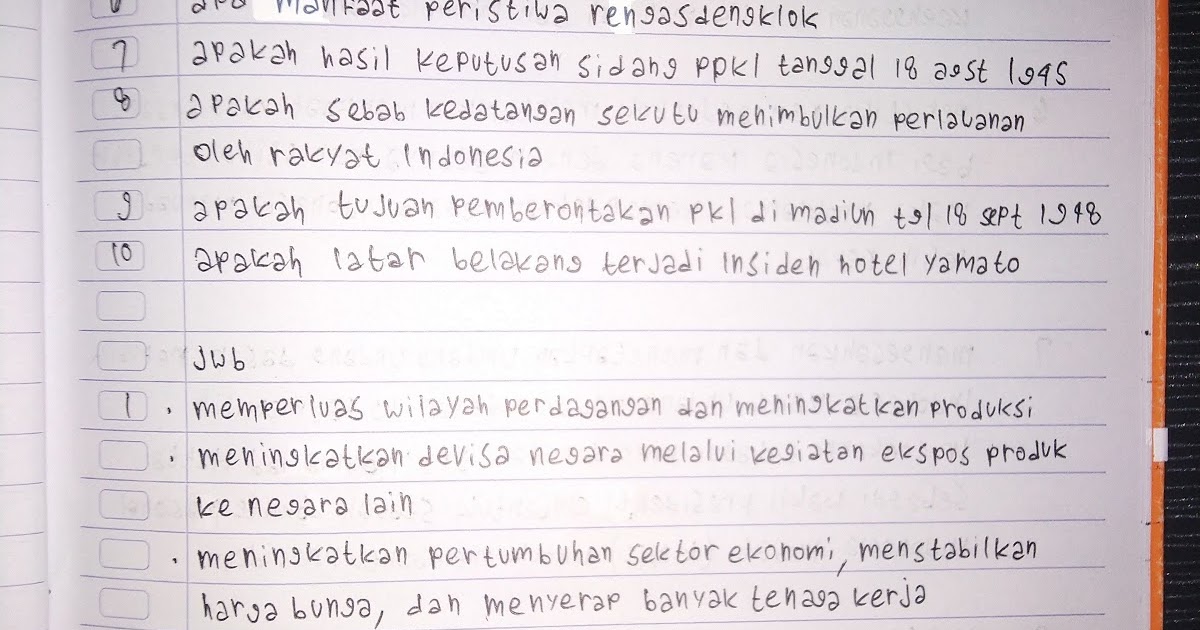 6 apa manfaat peristiwa rengasdengklok
7 apakah hasil keputusan sidang ppki tanggal 18 agst 1945
8 apakah sebab kedatangan sekutu menimbulkan perlawanan
oleh rakyat Indonesia
9 apakah tujuan pemberontakan pki di madiun tgl 18 sept 1948
10 apakah latar belakang terjadi insiden hotel yamato
jwb
1 . memperluas wilayah perdagangan dan meningkatkan produksi
. meningkatkan devisa negara melalui kegiatan ekspos produk
ke negara lain
. meningkatkan pertumbuhan sektor ekonomi, menstabilkan
harga bunga, dan menyerap banyak tenaga kerja